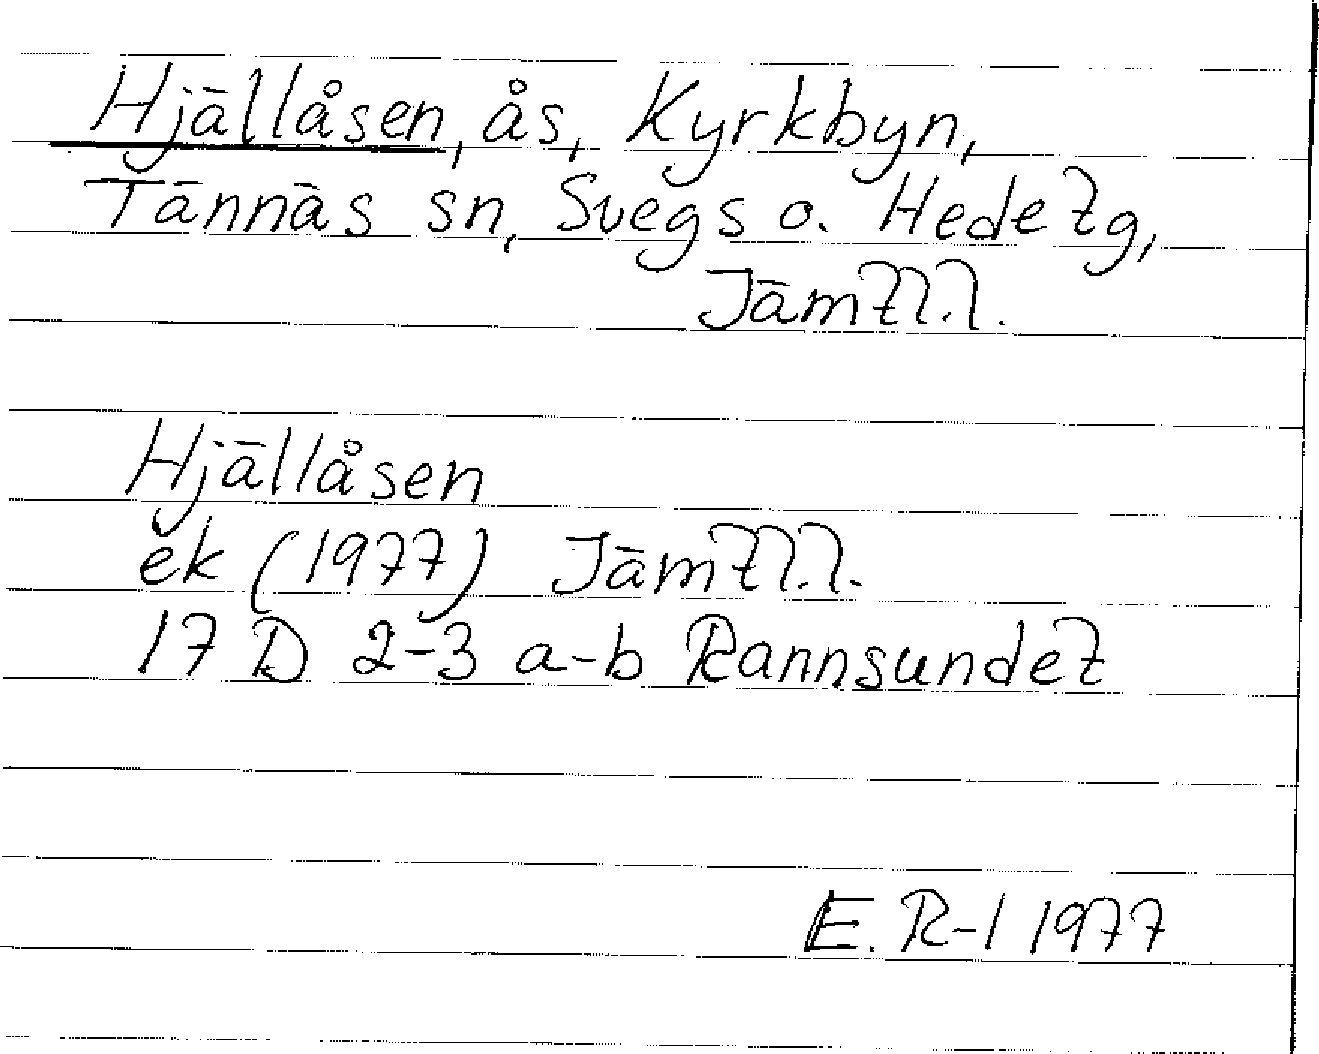 Hjällåsen, ås, Kyrkbyn,
Tännäs sn, Svegs o. Hede tg,
Jämtl. l.
Hjällåsen
ek (1977) Jämtl. l.
17 D 2-3 a-b Rannsundet
E. R-l 1977